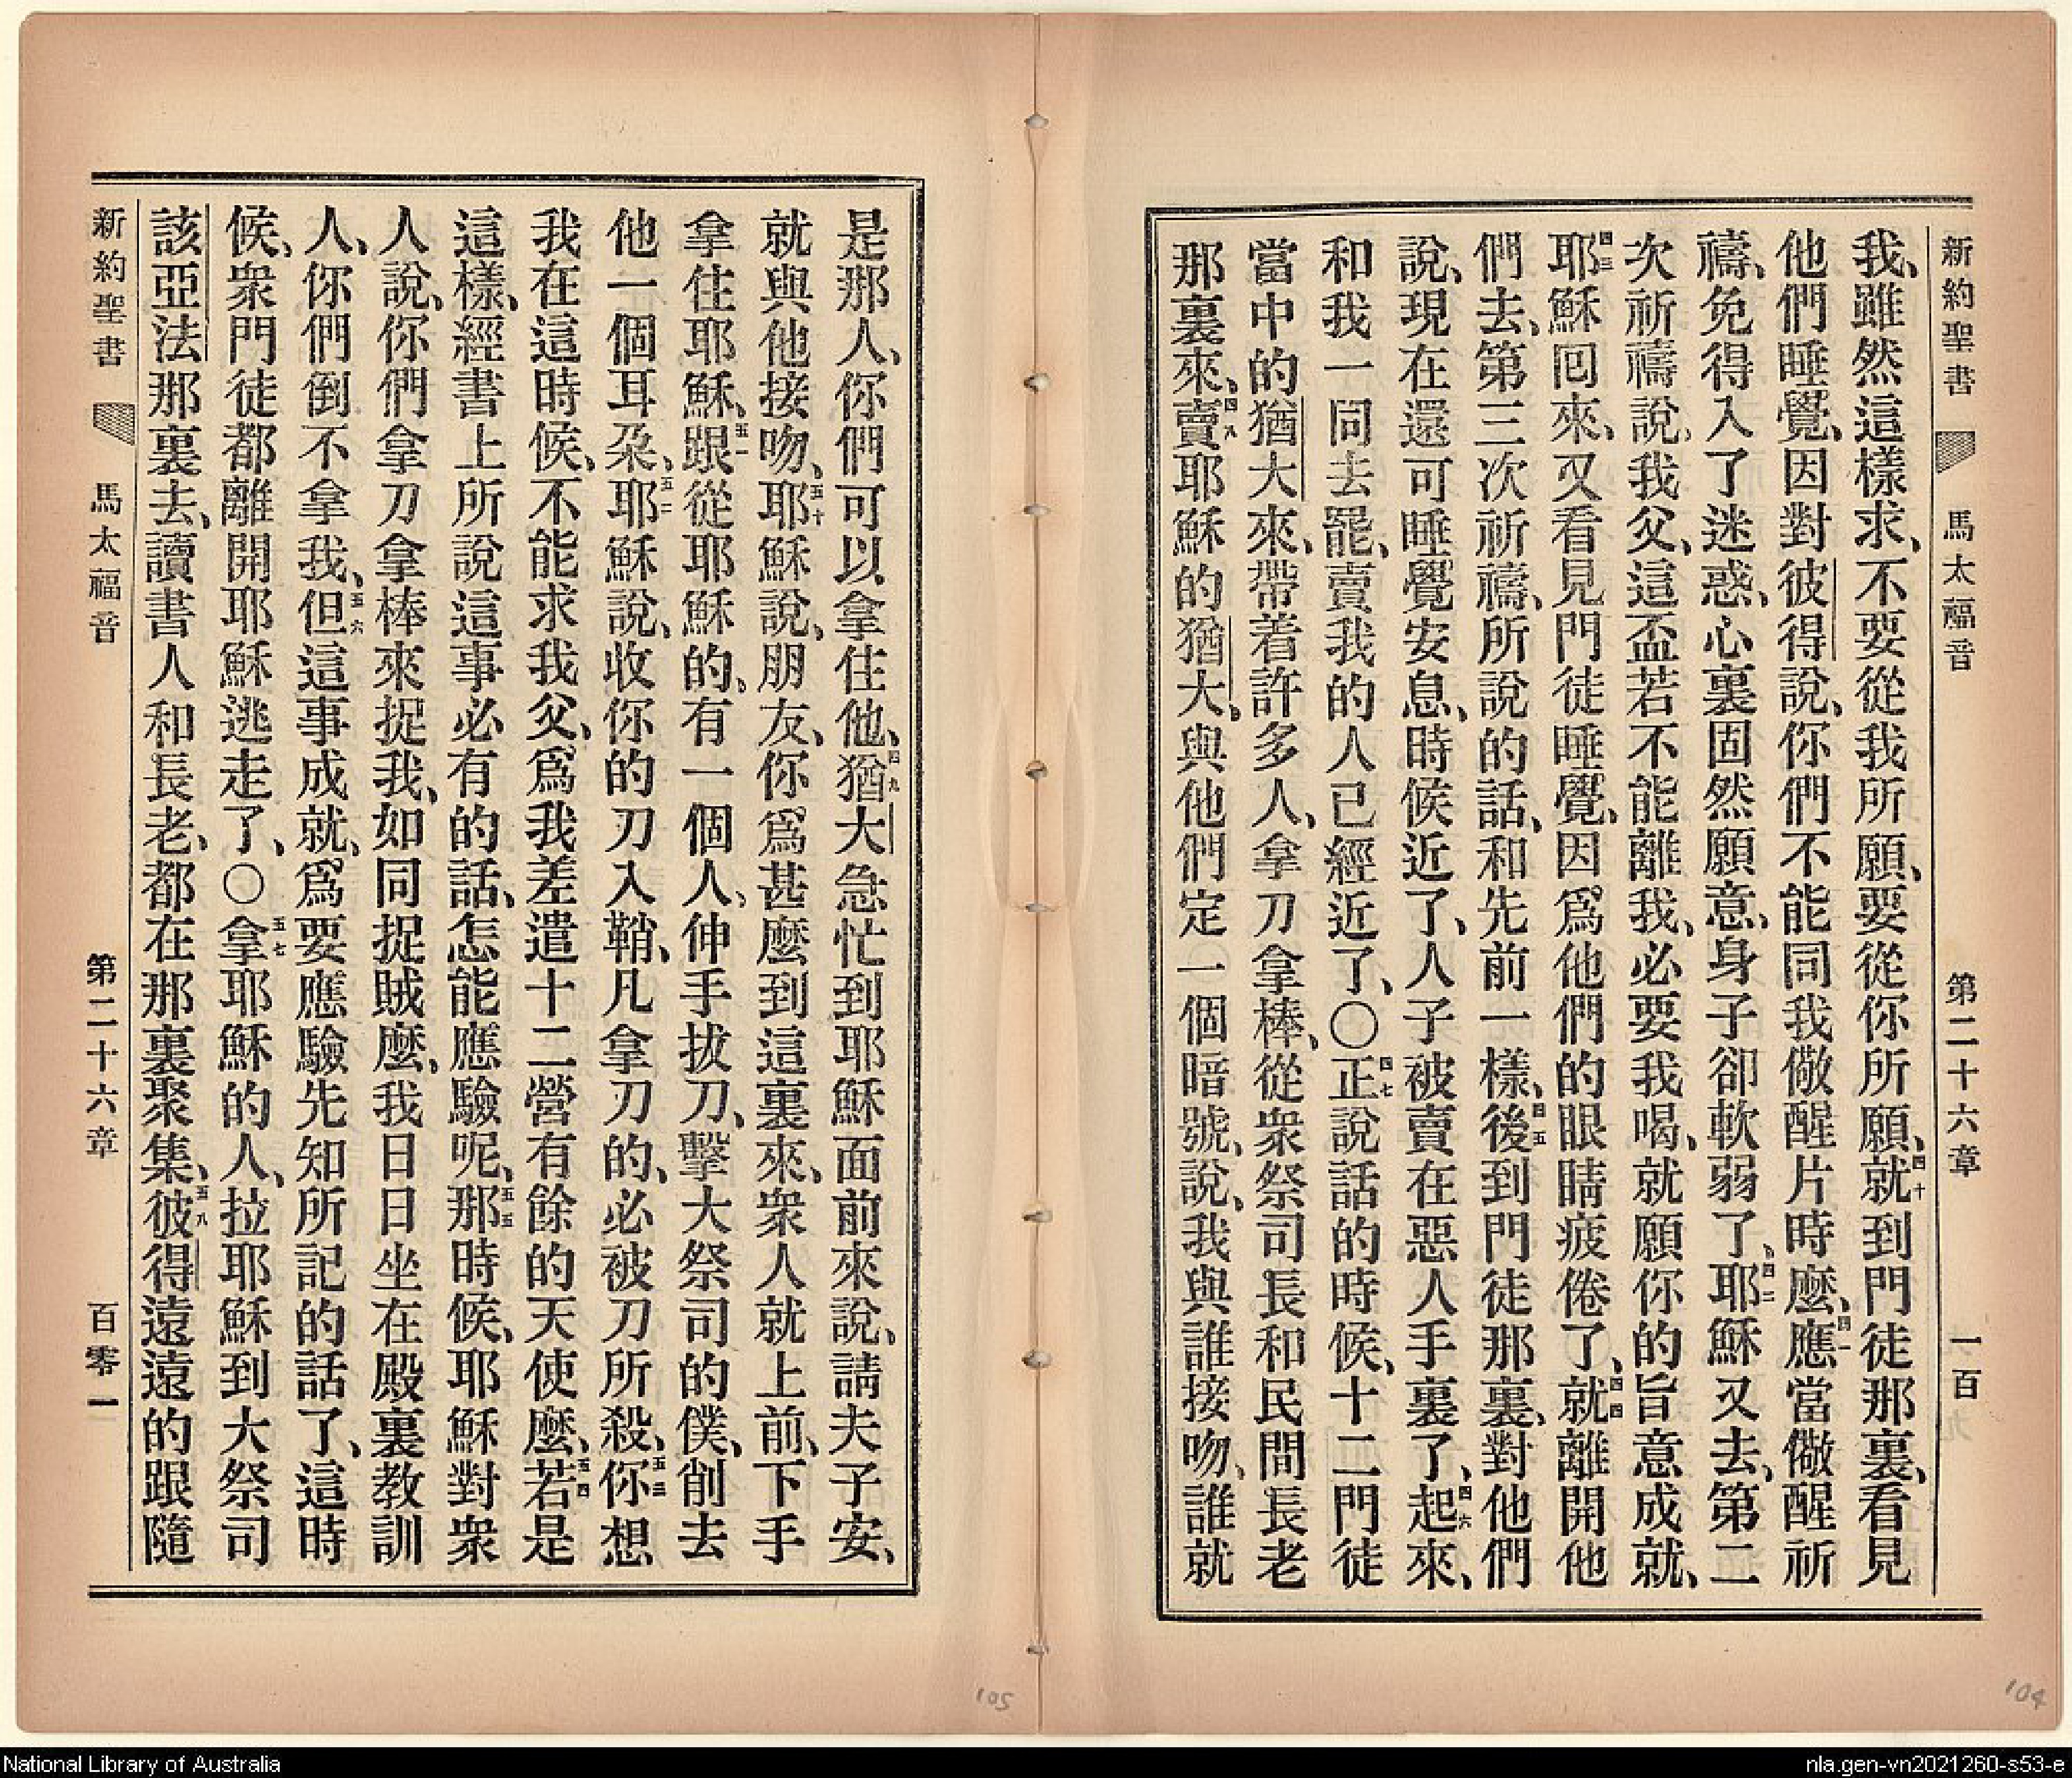 新約聖書 馬太福音 第二十六章 一百
我、雖然這樣求、不要從我所願、要從你所願、四十就到門徒那裏、看見
他們睡覺、因對彼得說、你們不能同我儆醒片時麼、四一應當儆醒祈
禱、免得入了迷惑、心裏固然願意、身子卻軟弱了、四二耶穌又去、第二
次祈禱說、我父、這盃若不能離我、必要我喝、就願你的旨意成就、
四三耶穌囘來、又看見門徒睡覺、因爲他們的眼睛疲倦了、四四就離開他
們去、第三次祈禱、所說的話、和先前一樣、四五後到門徒那裏、對他們
說、現在還可睡覺安息、時候近了、人子被賣在惡人手裏了、四六起來、
和我一同去罷、賣我的人已經近了、〇四七正說話的時候、十二門徒
當中的猶大來、帶着許多人、拿刀拿棒、從衆祭司長和民間長老
那裏來、四八賣耶穌的猶大、與他們定一個暗號、說、我與誰接吻、誰就
是那人、你們可以拿住他、四九猶大急忙到耶穌面前來說、請夫子安、
就與他接吻、五十耶穌說、朋友、你爲甚麼到這裏來、衆人就上前、下手
拿住耶穌、五一跟從耶穌的、有一個人、伸手拔刀、擊大祭司的僕、削去
他一個耳朶、五二耶穌說、收你的刀入鞘、凡拿刀的、必被刀所殺、五三你想
我在這時候、不能求我父、爲我差遣十二營有餘的天使麼、五四若是
這樣、經書上所說這事必有的話、怎能應驗呢、五五那時候、耶穌對衆
人說、你們拿刀拿棒來捉我、如同捉賊麼、我日日坐在殿裏教訓
人、你們倒不拿我、五六但這事成就、爲要應驗先知所記的話了、這時
候、衆門徒都離開耶穌逃走了、〇五七拿耶穌的人、拉耶穌到大祭司
該亞法那裏去、讀書人和長老、都在那裏聚集、五八彼得遠遠的跟隨
新約聖書 馬太福音 第二十六章 百零一
105
104
National Library of Australia
nla.gen-vn2021260-s53-e